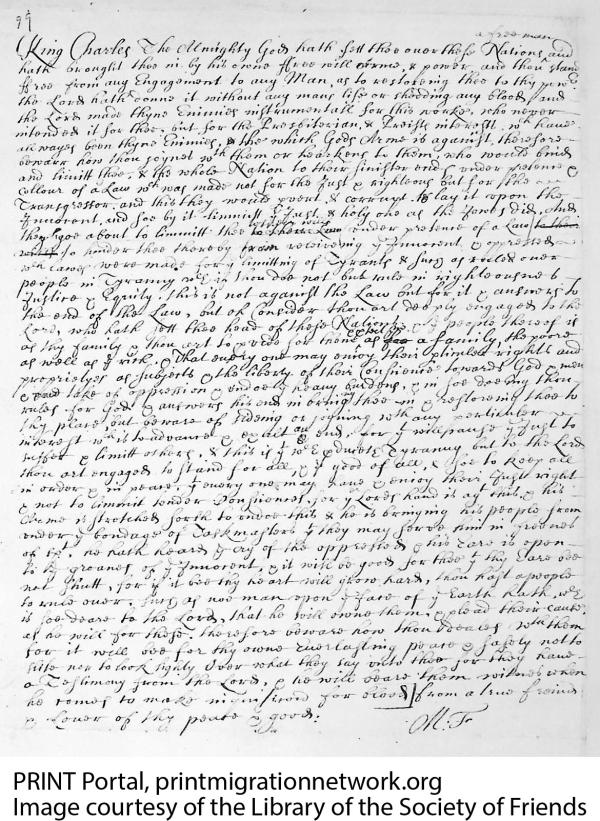 99
a free man
King Charles The Almighty God hath sett thee over these Nations, and
hath brought thee in by his owne ffree will Arme, & power, and thou stand
ffree from any Engagement to any Man, as to restoring thee to thy
the Lord hath donne it without any mans life or shedding any blood, and
the Lord made thyne Enimies instrumentall for this worke, who never
intended it for thee, but for the Presbiterian, & Preists interest wch have
allwayes been thyne Enimies, & the which Gods Arme is against, therefore
bewarr how thou joynes wth them or hearkens to them, who would bind
and limitt thee, & the whole Nation to their sinister ends under pretence
collour of a Law wch was made not for the Just & righteous but for the
Transgressor, and this they would pvent, & corrupt to lay it upon the
Innocent, and soe by it limmitt ye Just, & holy one as the Jewes did, And
they goe about to limmitt thee their Law under pretence of a Law
to hinder thee thereby from receiveing ye Innocent, & oppressed
wch lawes were made for ye limitting of Tyrants & such as ruled over
people in Tyranny wch if thou doe not but rule in righteousnes
Justice & Equity, this is not against the Law but for it & answers to
the end of the Law, but oh consider thou art deeply engaged to the
Lord, who hath sett thee head of these Nations & ye people thereof is
as thy family & thou art to pvide for them as a family, the poore
as well as ye rich, & that every one may enjoy their rights and
proprietyes as subjects & the liberty of their Consience towards God & men
& take of oppression & undoe ye heavy burdens, & in soe doeing thou
rules for God & answers his end in bring thee in & restoreing thee to
thy place, but beware of sideing or joyning wth any perticuler
interest wch is to advance & exalt an end, for ye will cause ye Just to
suffer & limitt others, & this is ye wch Tyranny but to the Lord
thou art engaged to stand for all, & ye good of all, & soe to keep all
in order & in peace, ye every one may have & enjoy their Just right
& not to limmitt tender Consiences, for ye Lords hand is agt this, & his
Arme is stretched forth to this & he is bringing his people from
under ye bondage of Taskmasters yt they may serve him in freenes
of he hath heard ye cry of the oppressed & his Eare is open
to ye groanes of ye Innocent, & it will be good for thee yt thy Eare bee
not shutt, for if it bee thy heart will grow hard, thou hast a people
to rule over, such as noe man upon ye face of ye Earth hath, wch
is soe deare to the Lord, that he will owne them, & plead their cause,
as he will for these, therefore beware how thou deales wth them
for it will bee for thy owne Everlasting peace & safety not to
nor to look lightly over what they say unto thee for they have
a Testimony from the Lord, & he will beare them witnes when
he comes to make inquisition for blood from a true freind
& Lover of thy peace & good:
M. F
PRINT Portal, printmigrationnetwork.org
Image courtesy of the Library of the Society of Friends